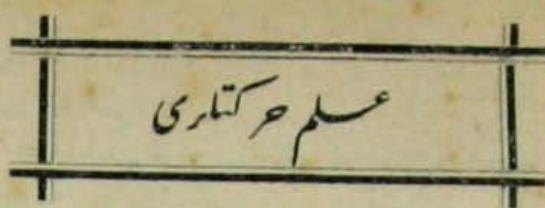 علم حركتلرى